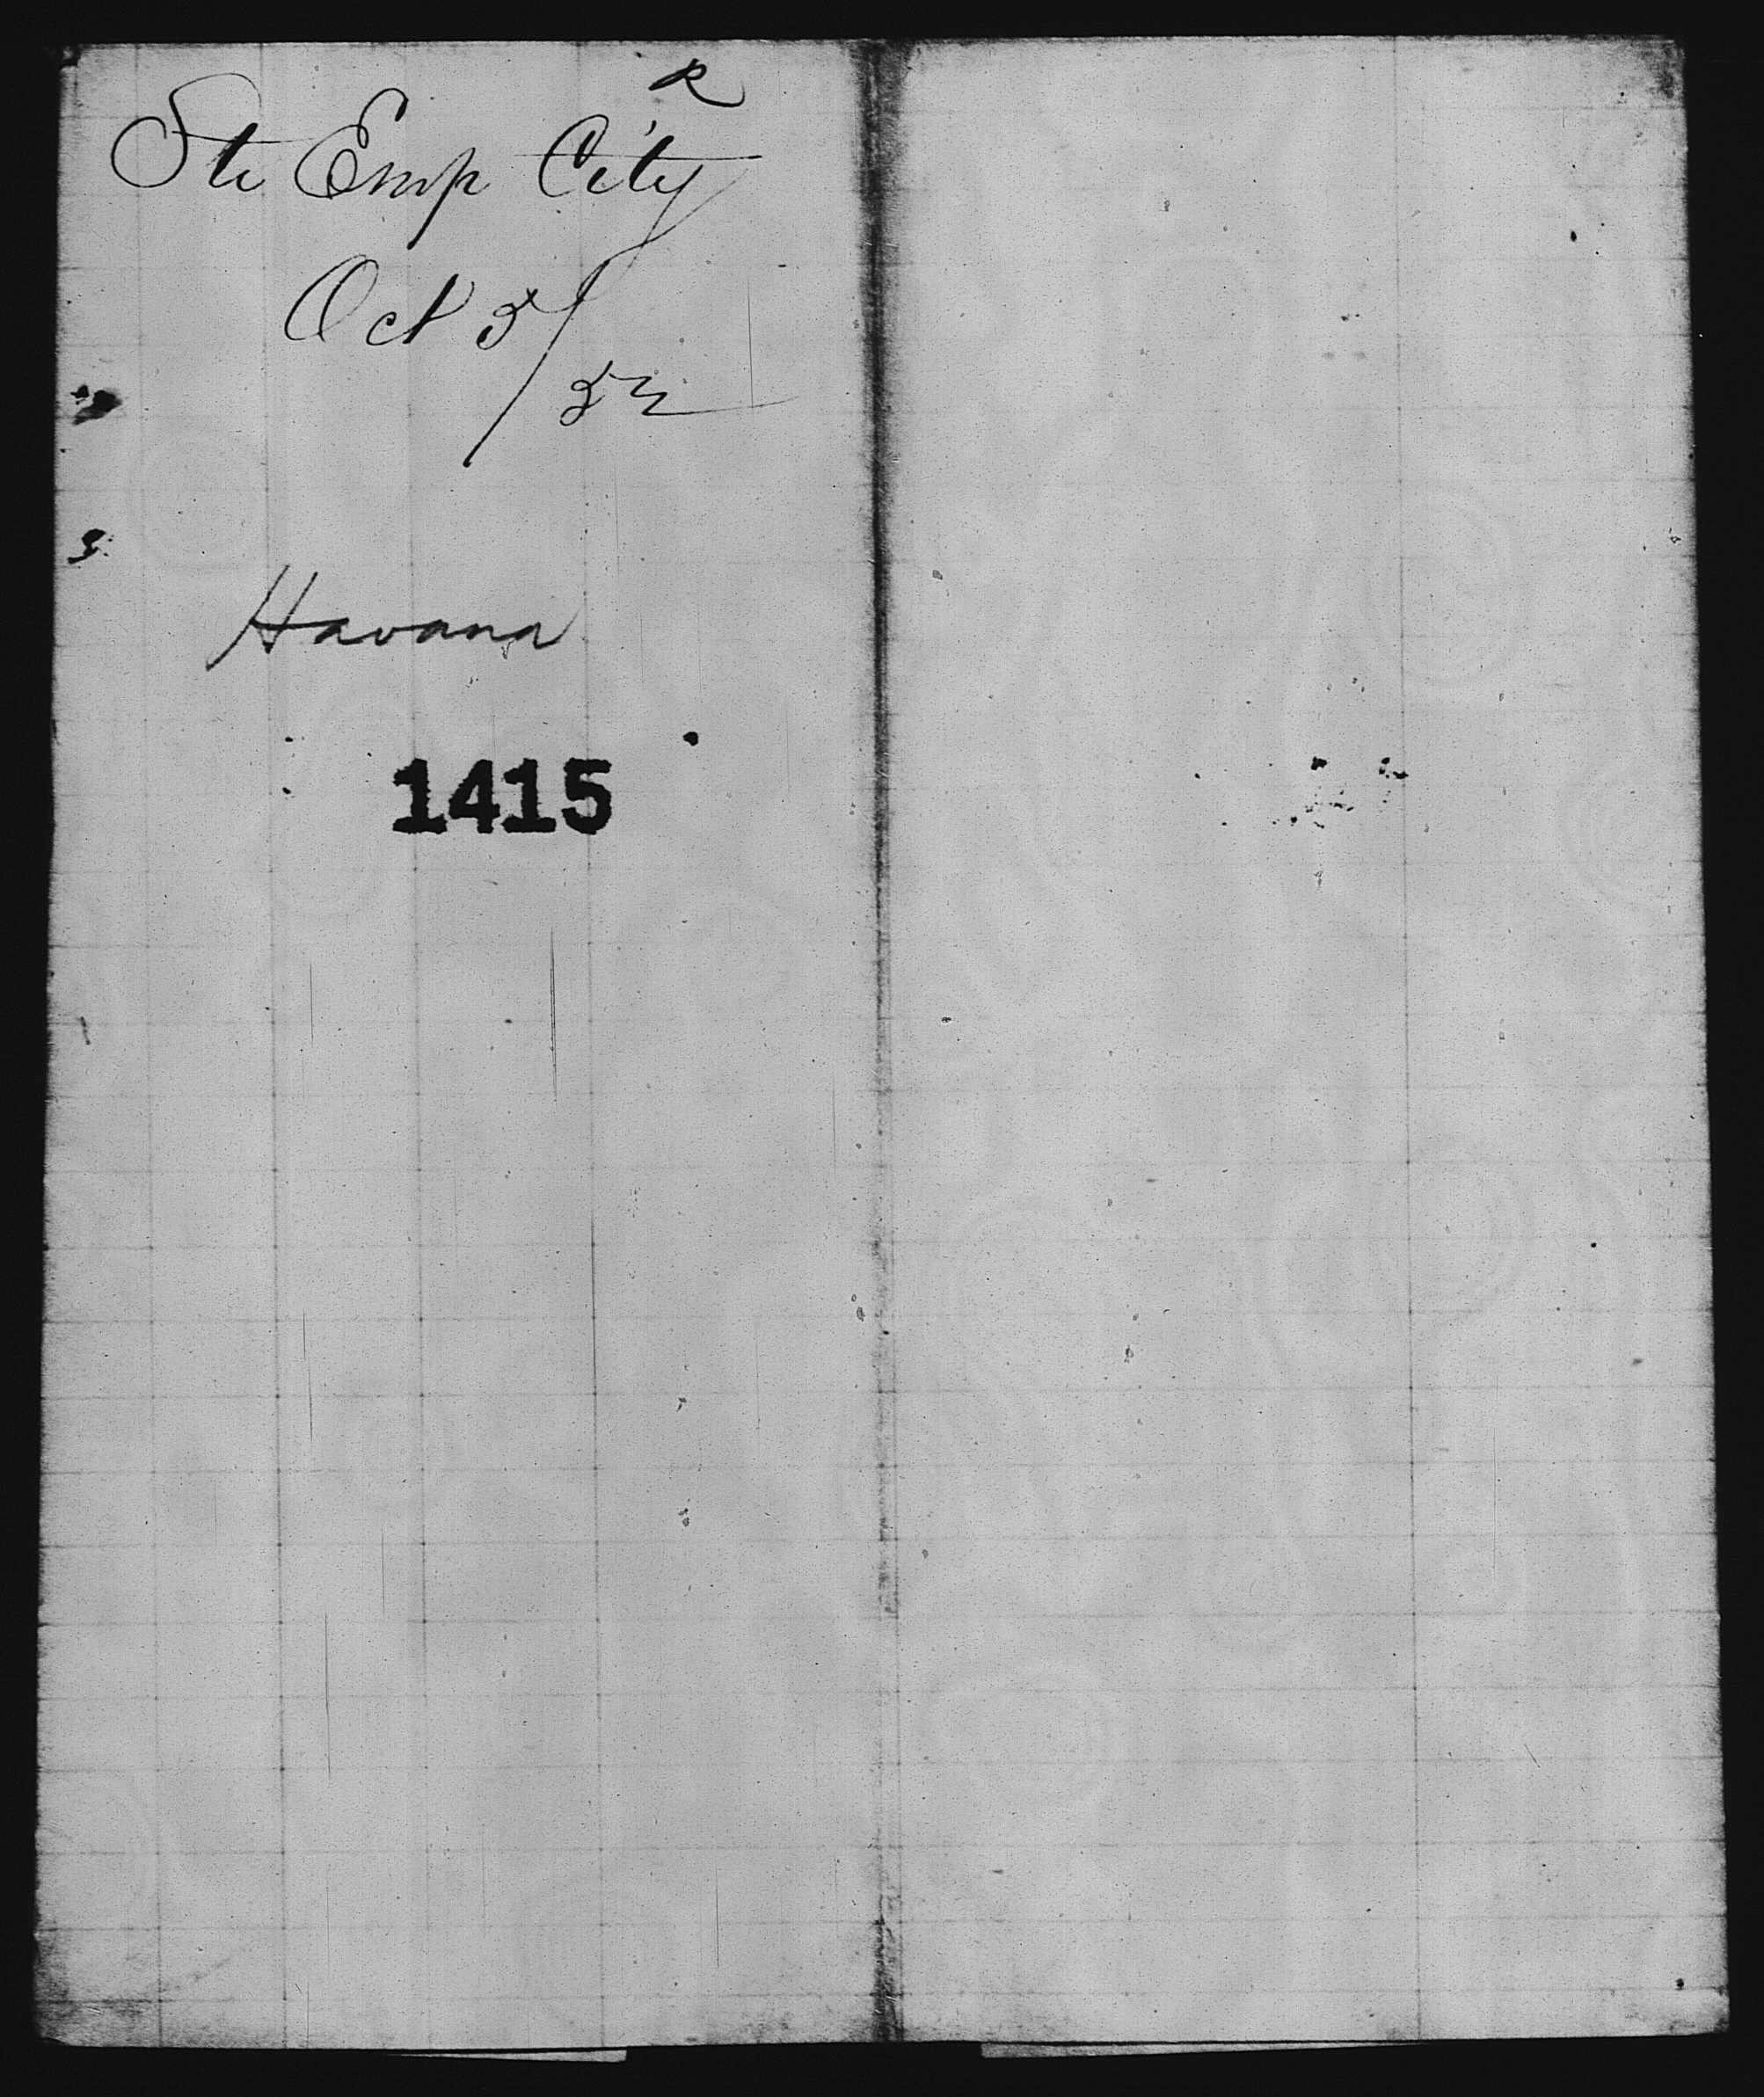 R
Str Emp City
Oct 5/52
Havana
1415